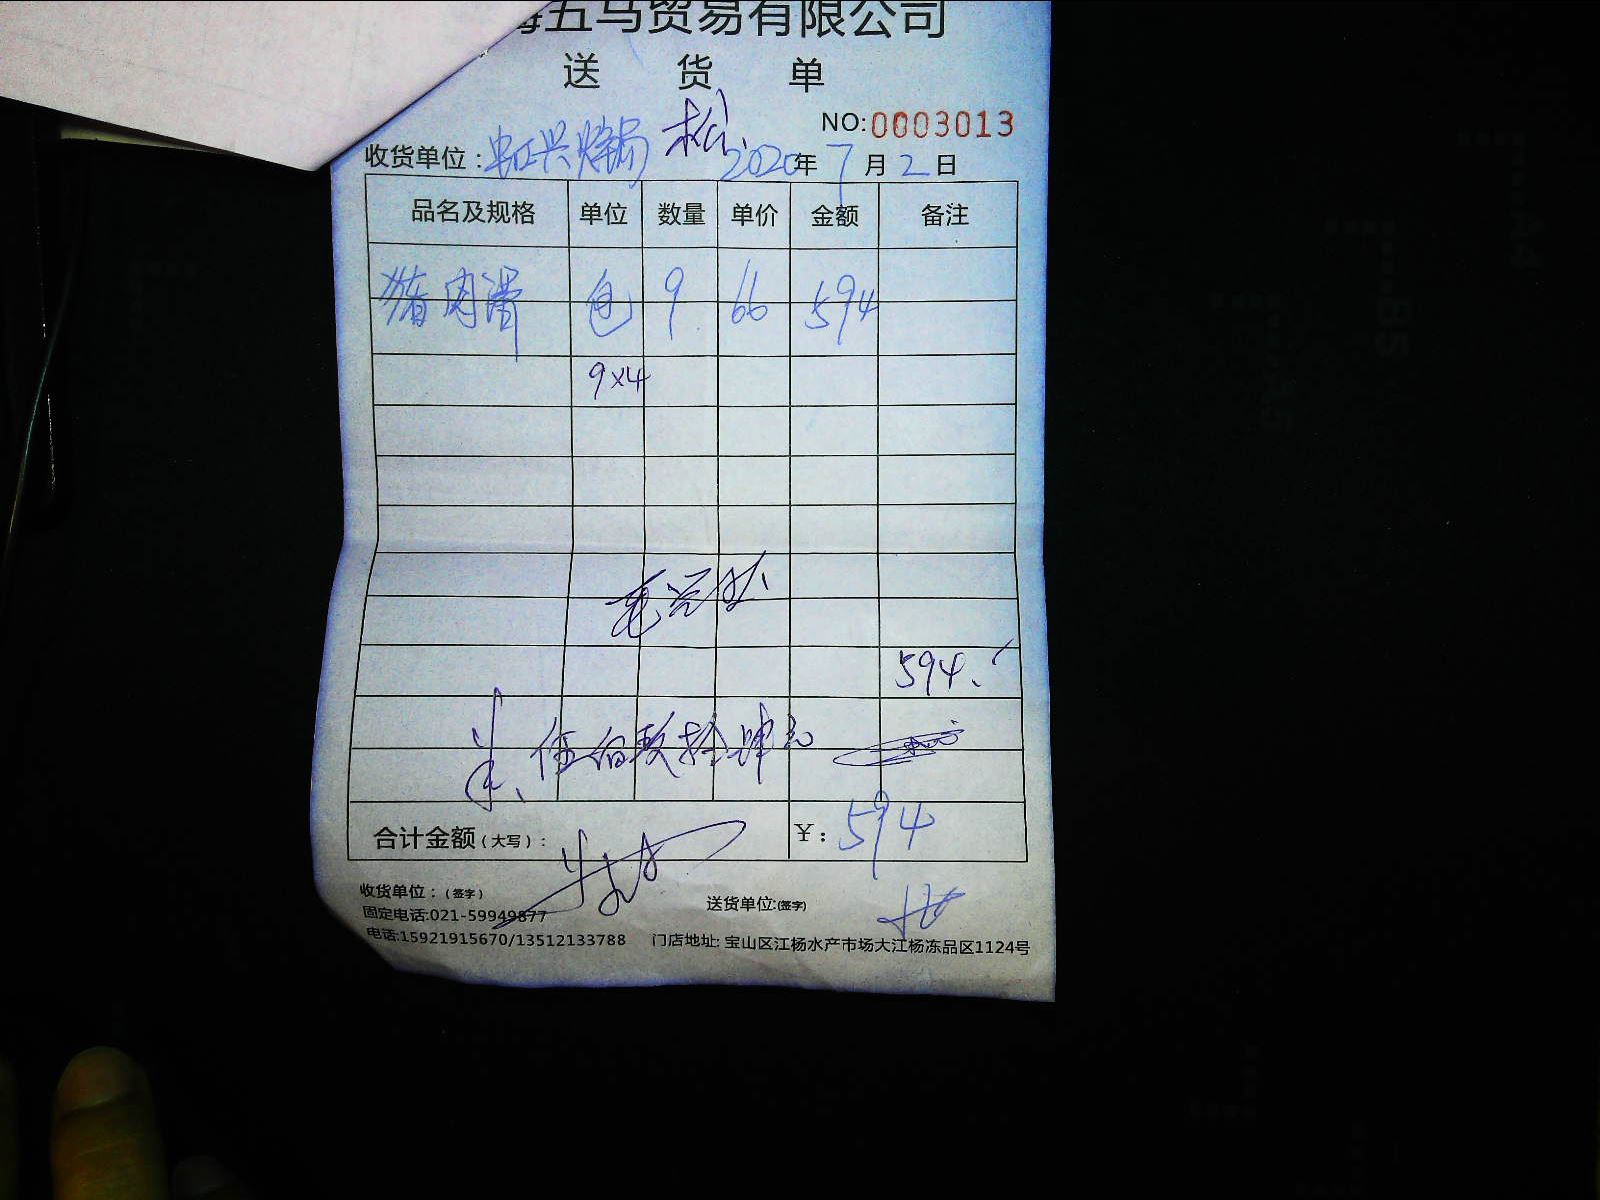 海五马贸易有限公司
送 货 单
NO:0003013
收货单位: 松
2020年7月2日
品名及规格 单位 数量 单价 金额 备注
猪肉滑 包 9 66 594
9×4
594.
伍佰玖拾肆元
合计金额(大写): ¥:594
收货单位:(签字) 送货单位:(签字)
固定电话:021-59949877
电话:15921915670/13512133788 门店地址:宝山区江杨水产市场大江杨冻品区1124号